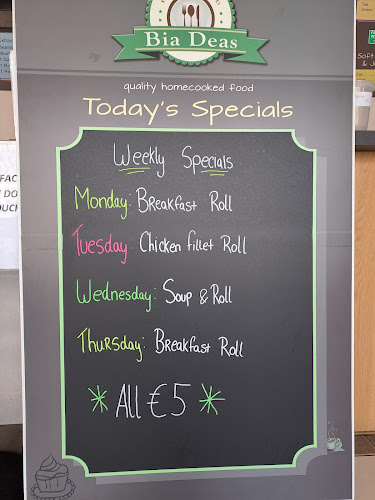 Bia Deas
quality homecooked food
Today's Specials
Weekly Specials
Monday: Breakfast Roll
Tuesday: Chicken fillet Roll
Wednesday: Soup & Roll
Thursday: Breakfast Roll
* All €5 *